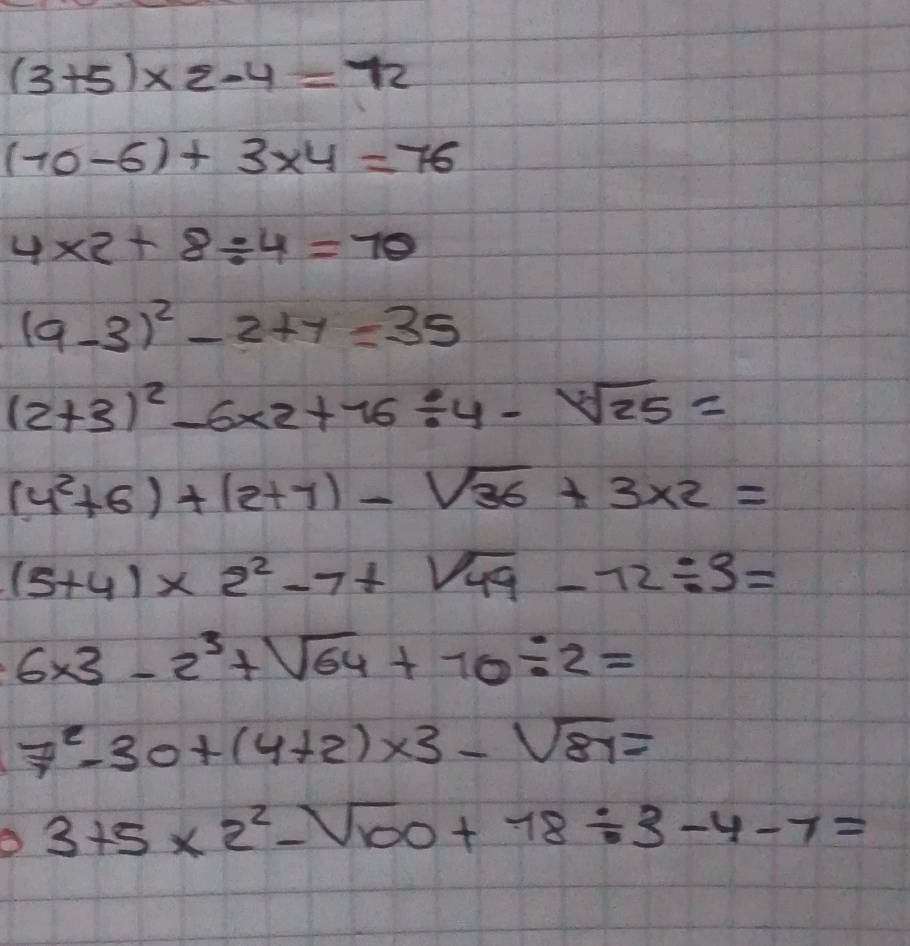 (3+5)×2-4=12
(10-6)+3×4=16
4×2+8÷4=10
(9-3)²-2+1=35
(2+3)²-6×2+16÷4-√25=
(4²+6)+(2+1)-√36+3×2=
(5+4)×2²-7+√49-12÷3=
6×3-2³+√64+10÷2=
7²-30+(4+2)×3-√81=
3+5×2²-√100+18÷3-4-1=